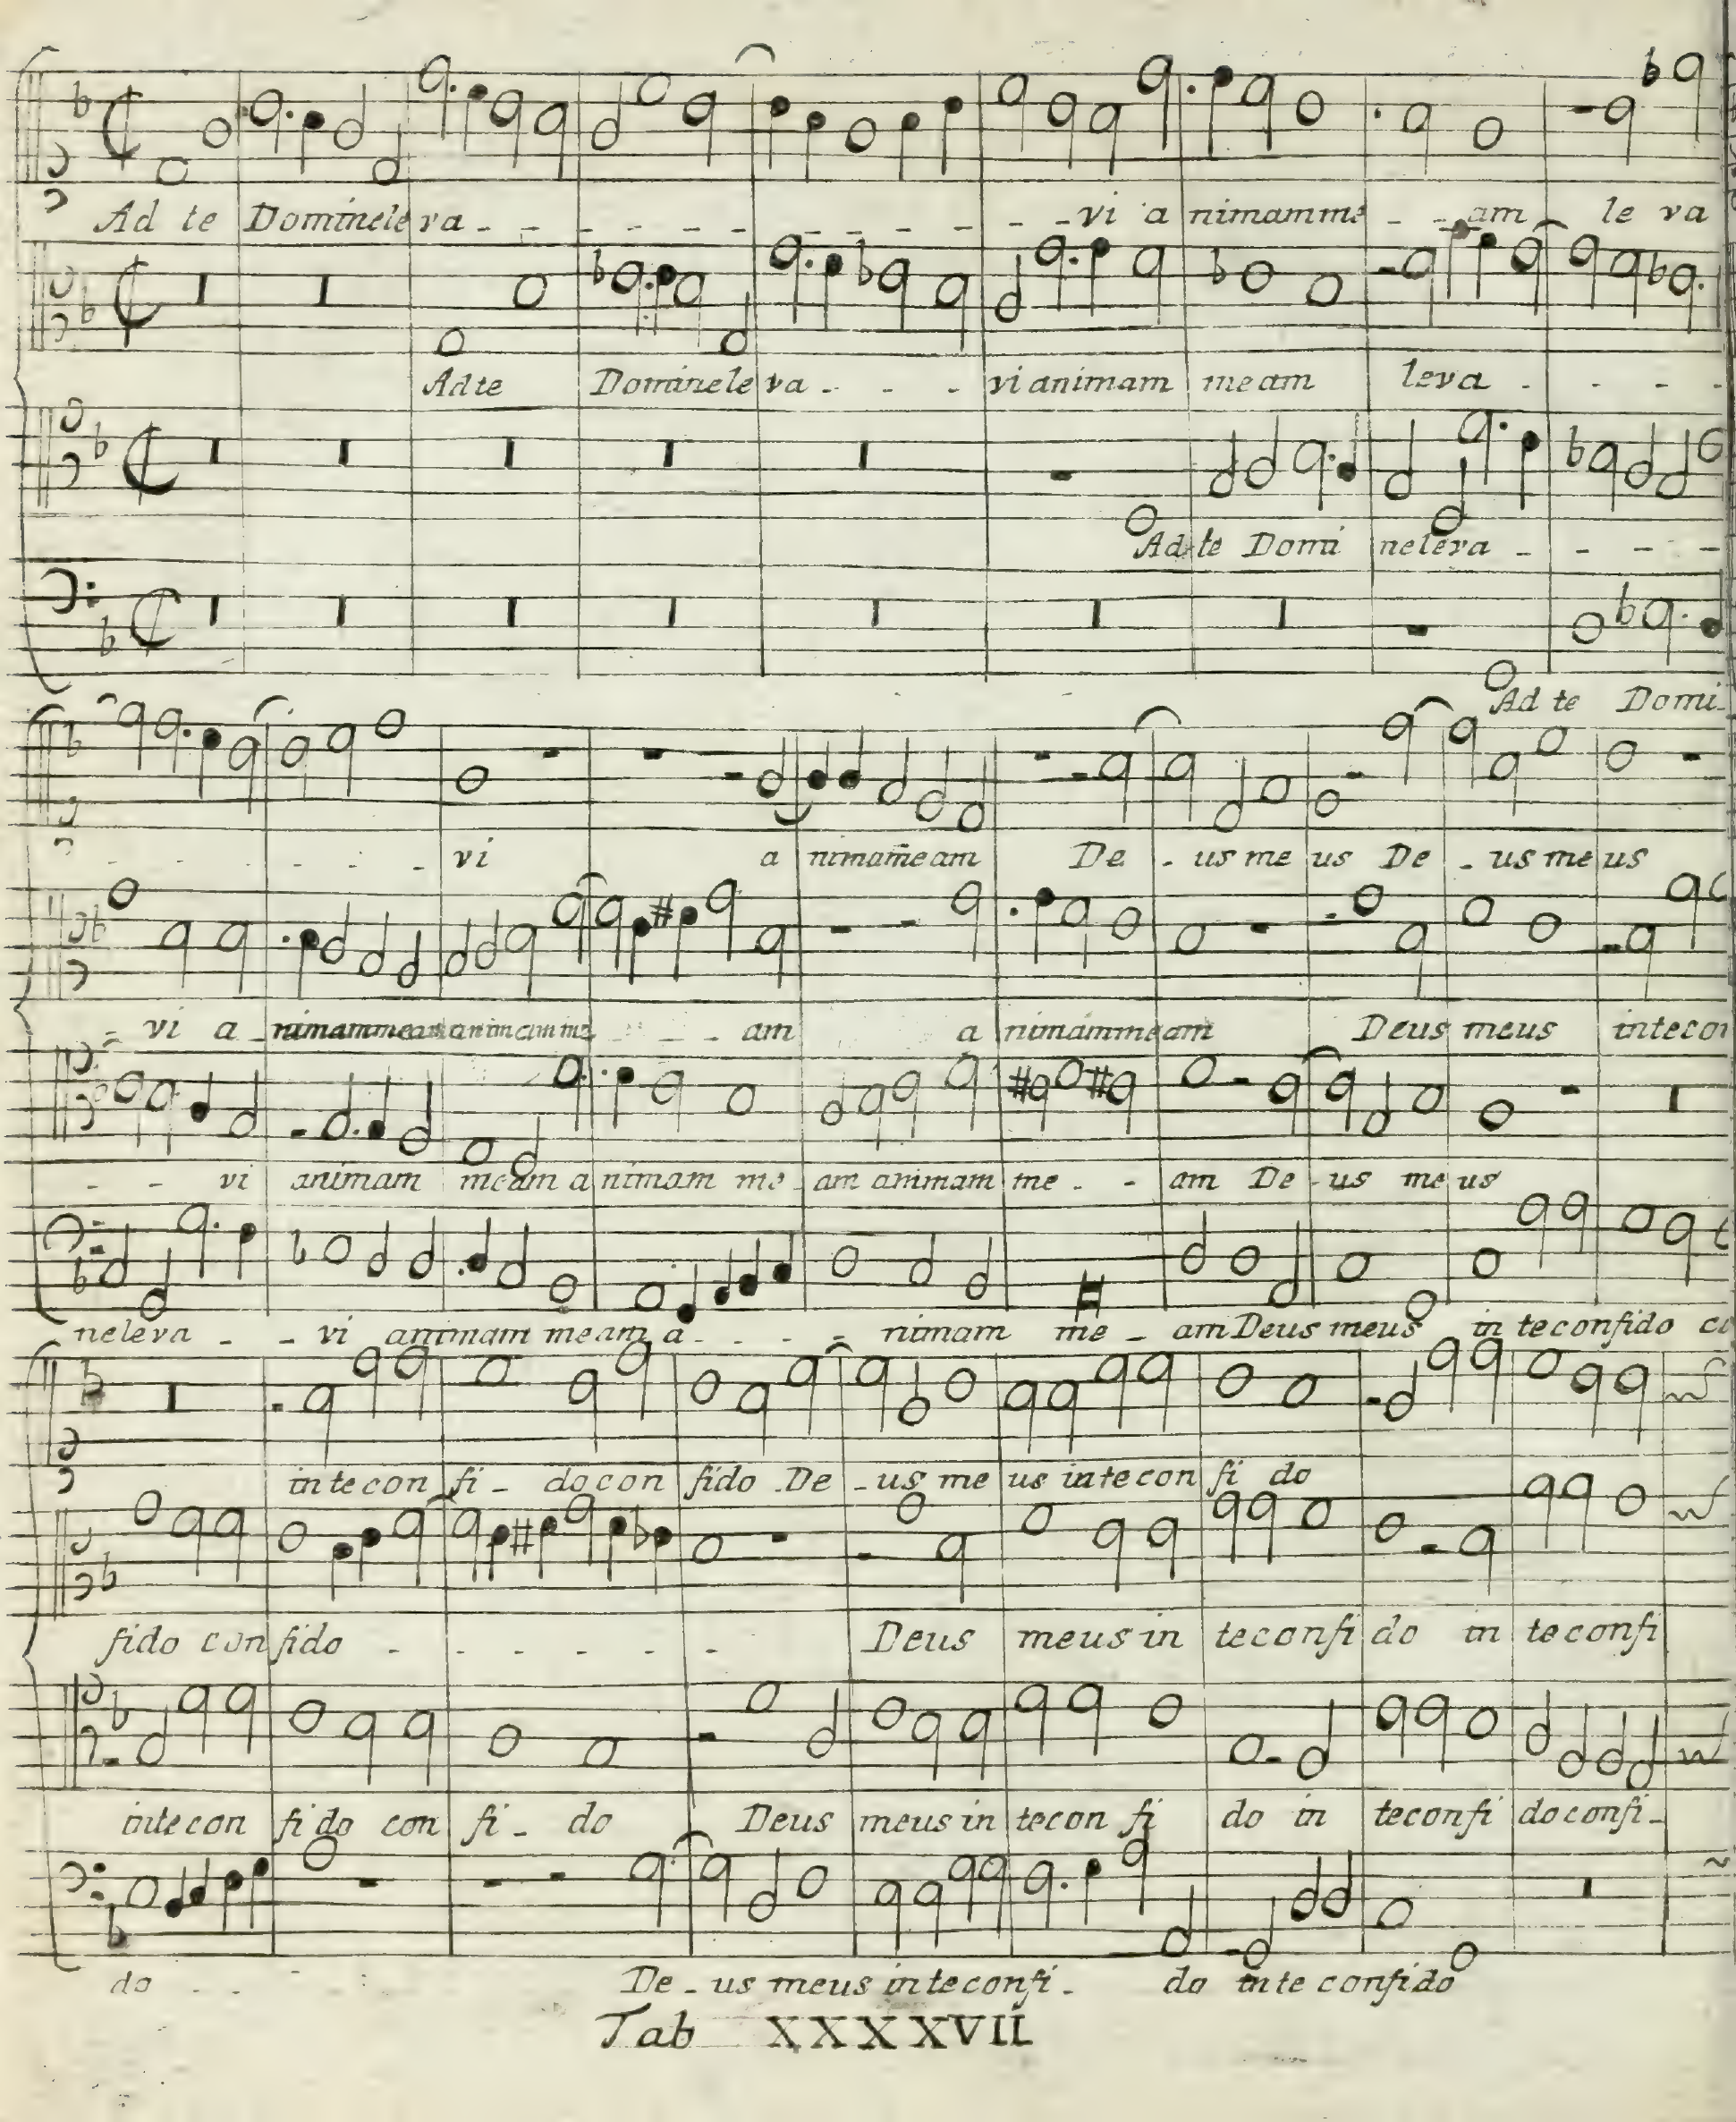 Ad te Dominele va - - - - - - - - - - vi a nimam me - - am le va
Ad te Dominele va - - - vi animam me am leva - - - -
Ad te Domi neleva - - - - -
Ad te Domi -
- - - - - - vi a nimam̄eam De - us me us De - us me us
- vi a nimammeam animam me - - - am a nimammeam Deus meus intecon
- - vi animam meam a nimam me - am animam me - - am De - us me us
neleva - - vi animam meam a - - - - nimam me - am Deus meus in teconfido co
intecon fi - do con fido De - us me us intecon fi do
fido con fido - - - - - - - Deus meus in teconfi do in teconfi
intecon fi do con fi - do Deus meus in tecon fi do in teconfi do confi -
do - - - - De - us meus inteconfi - do inte confido
Tab XXXXVII